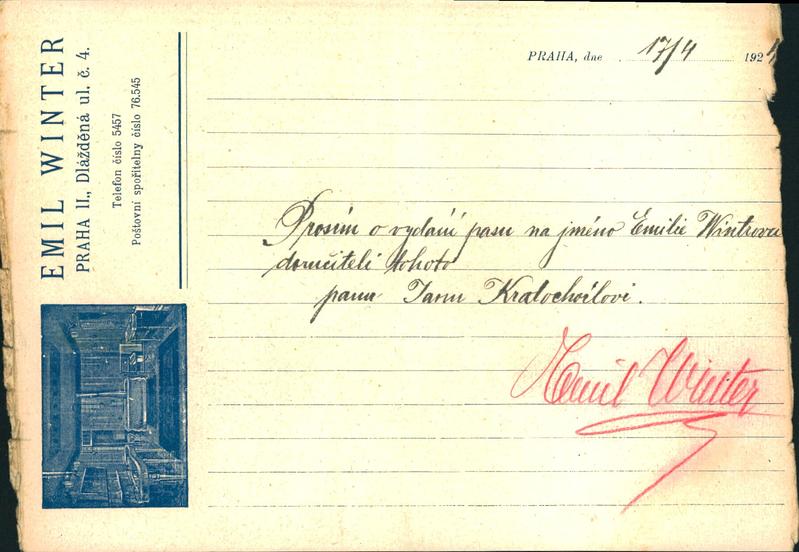 EMIL WINTER
PRAHA II., Dlážděná ul. č. 4.
Telefon číslo 5457
Poštovní spořitelny číslo 76.545
PRAHA, dne 17/4 1924
Prosím o vydání pasu na jméno Emilie Wintrova
doručiteli tohoto
panu Janu Kratochvílovi.
Emil Winter